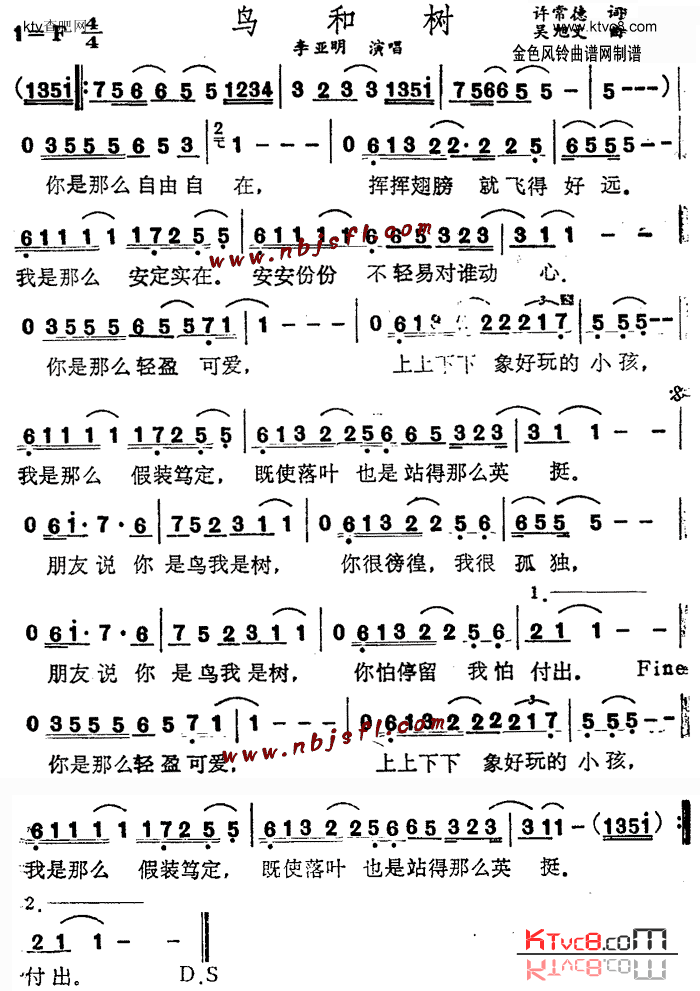 ktv查吧网
www.ktvc8.com
鸟 和 树
许常德 词
李亚明 演唱
1=F 4/4
金色风铃曲谱网制谱
(1351 : 75665 5 1234 | 3 2 3 3 1351 | 756655 - | 5 - - - )
0 3555 5653 | 1 - - - | 0 6132 2· 2 25 | 6555 5 - - |
你是那么自由自 在， 挥挥翅膀 就飞得 好 远。
6111 1 1725 5 | 6111 1 665323 | 311 - - |
www.nbjsfl.com
我是那么 安定实在。 安安份份 不轻易对谁动 心.
0 3555 65571 | 1 - - - | 0 61 22217 | 5 555 - - |
你是那么轻盈 可爱， 上上下下 象好玩的 小 孩，
6111 1 1725 5 | 6132 256 65323 | 31 1 - - |
我是那么 假装笃定， 既使落叶 也是站得那么英 挺.
0 6i· 7· 6 | 75231 1 | 0 6132 2 256 | 655 5 - - |
朋友说 你 是鸟我是树， 你很徬徨， 我很 孤 独，
1.
0 6i· 7· 6 | 7 5 231 1 | 0 6132 2 256 | 21 1 - -
朋友说 你 是鸟我是树， 你怕停留 我怕 付出。 Fine
0 3555 5 6571 | 1 - - - | 0 613 222217 | 5 555 - -
www.nbjsfl.com
你是那么轻盈可爱， 上上下下 象好玩的 小 孩，
6111 1 1725 5 | 6132 2566 5 323 | 311 - (1351 :
我是那么 假装笃定， 既使落叶 也是站得那么英 挺.
2.
21 1 - -
付出。 D.S
KTvc8.com